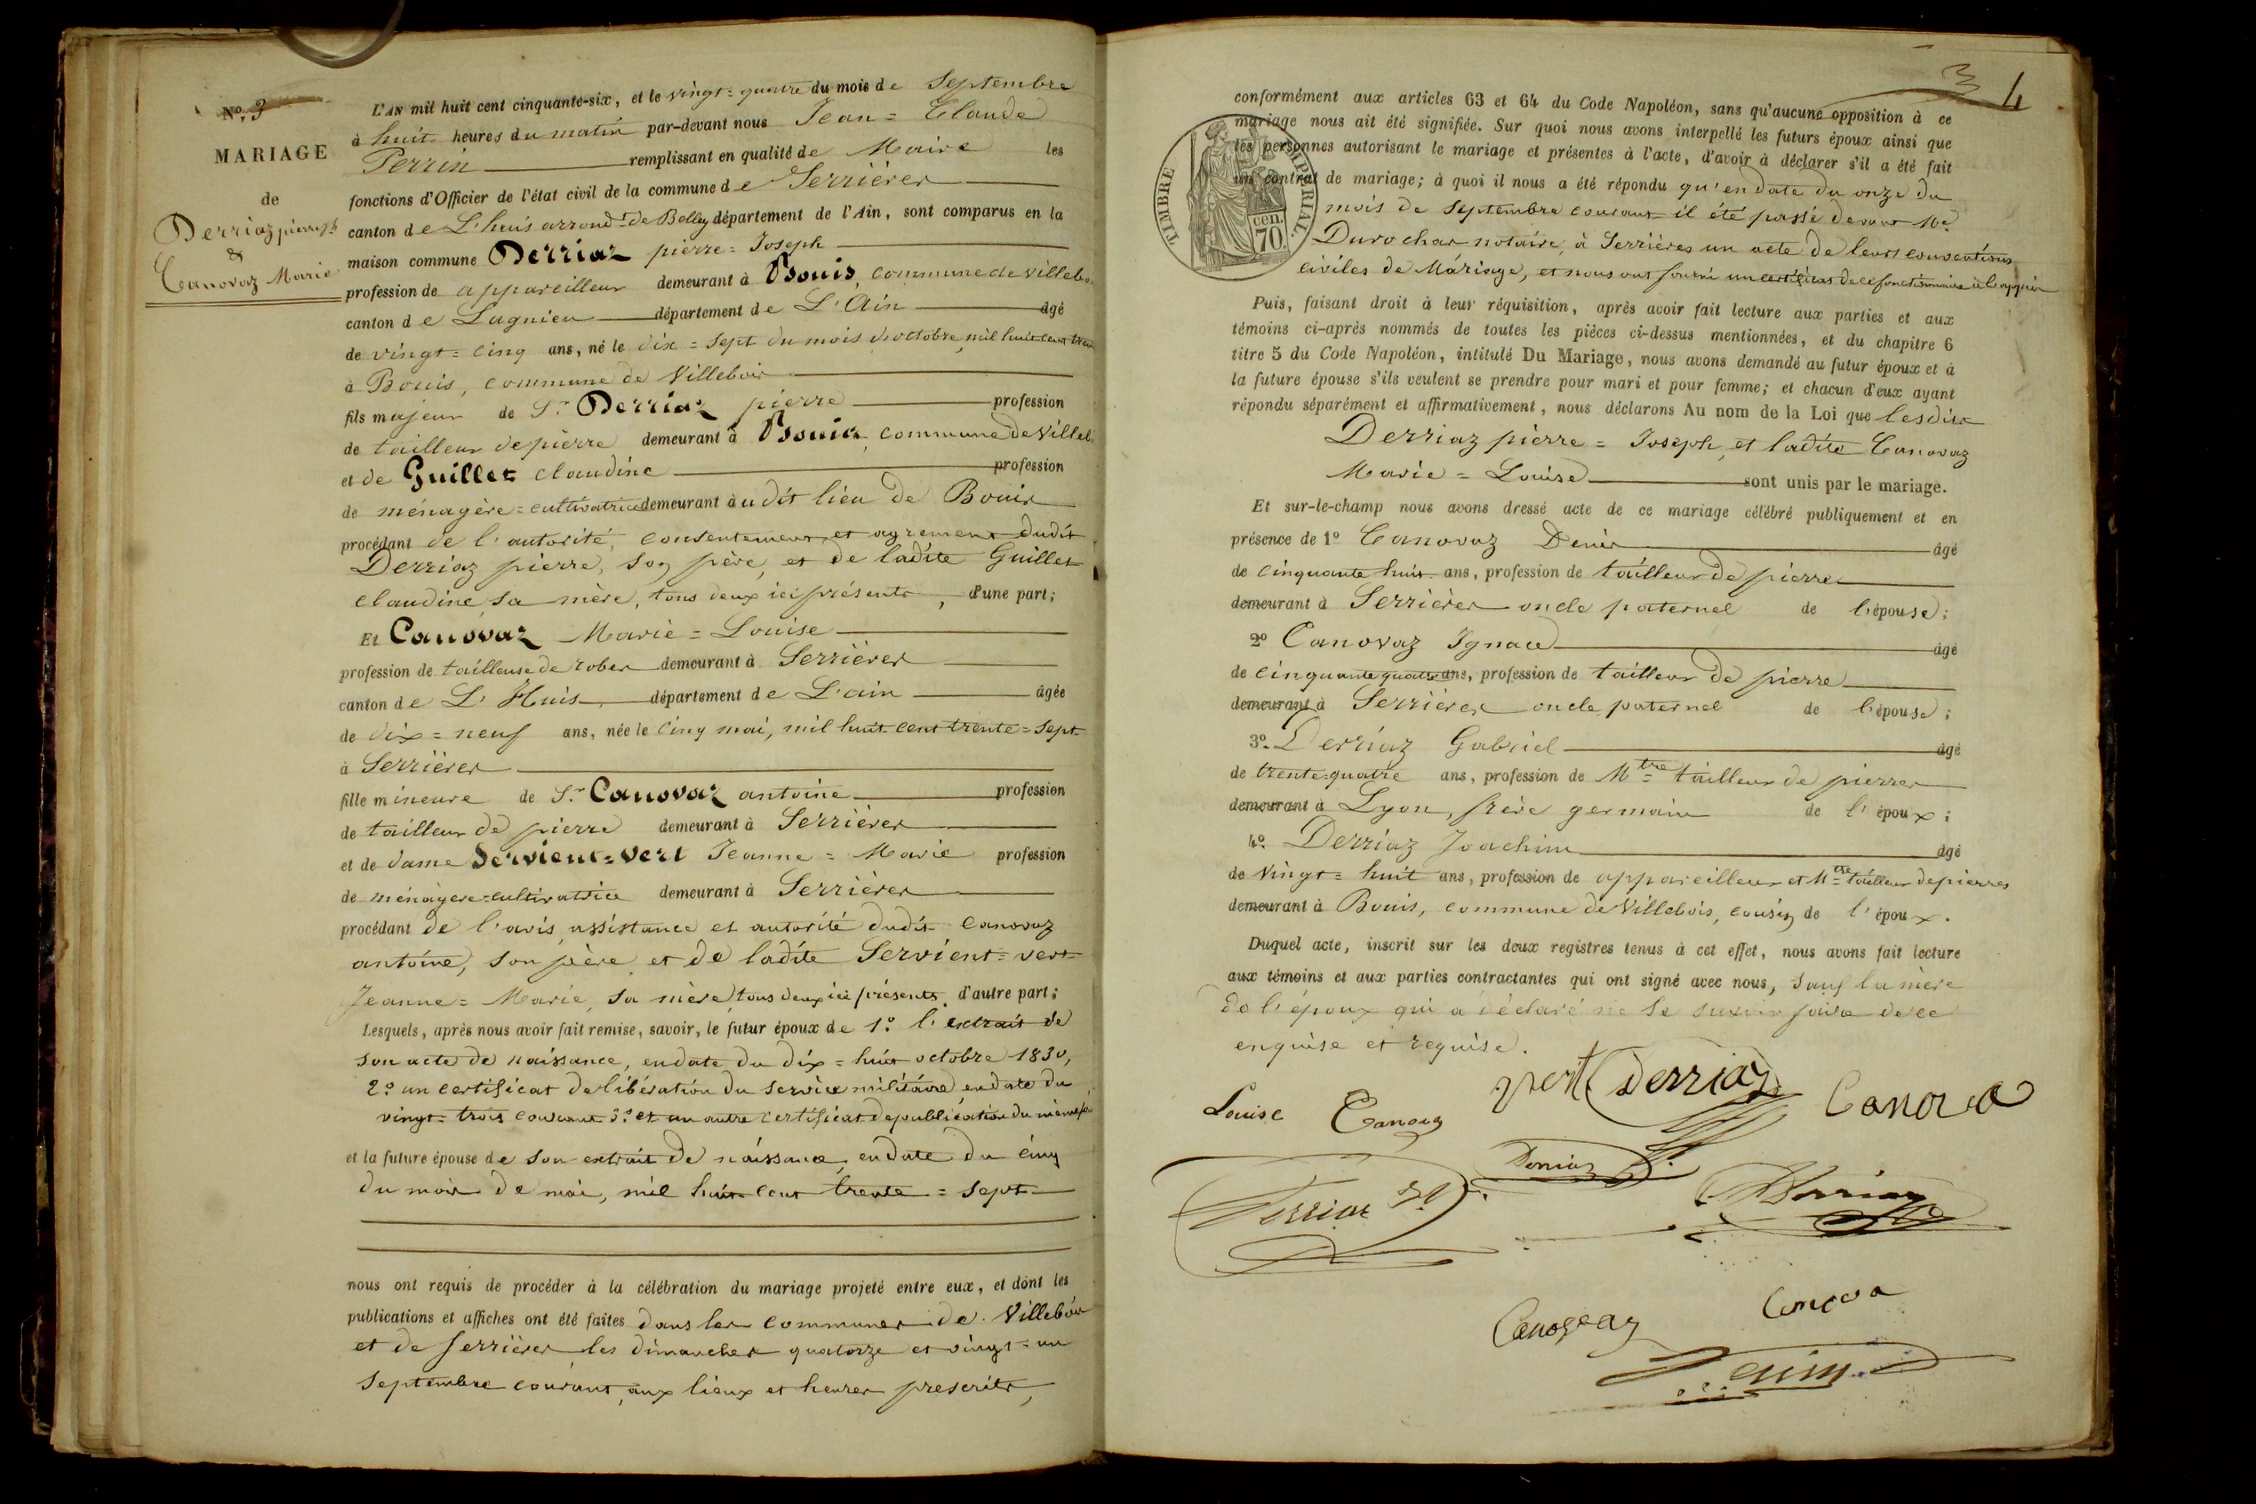 N° 3
MARIAGE
de
Derriaz pierre Jh
&
Canovaz Marie
L'AN mil huit cent cinquante-six, et le vingt=quatre du mois de Septembre
à huit heures du matin par-devant nous Jean=Claude
Perrin remplissant en qualité de Maire les
fonctions d'Officier de l'état civil de la commune de Serrières
canton de L'huis arrondt de Belley département de l'Ain, sont comparus en la
maison commune Derriaz pierre=Joseph
profession de appareilleur demeurant à Bouis, commune de villebois
canton de Lagnieu département de L'Ain âgé
de vingt=cinq ans, né le dix=sept du mois d'octobre mil huit cent trente
à Bouis, commune de Villebois
fils majeur de Sr Derriaz pierre profession
de tailleur de pierre demeurant à Bouis commune de Villeb
et de Guillet claudine profession
de ménagère=cultivatrice demeurant à udit lieu de Bouis
procédant de l'autorité, consentement et agrément dudit
Derriaz pierre, son père, et de ladite Guillet
claudine sa mère, tous deux ici présents, d'une part;
Et Canovaz Marie=Louise
profession de tailleuse de robes demeurant à Serrières
canton de L'Huis département de L'ain âgée
de dix=neuf ans, née le cinq mai, mil huit cent trente=sept
à Serrières
fille mineure de Sr Canovaz antoine profession
de tailleur de pierre demeurant à Serrières
et de dame Servient=vert Jeanne=Marie profession
de ménagère=cultivatrice demeurant à Serrières
procédant de l'avis, assistance et autorité dudit Canovaz
antoine, son père et de ladite Servient=vert
Jeanne=Marie, sa mère, tous deux ici présents, d'autre part;
Lesquels, après nous avoir fait remise, savoir, le futur époux de 1° l'extrait de
son acte de naissance, en date du dix=huit octobre 1830,
2° un certificat de libération du service militaire en date du
vingt=trois courant 3° et un autre certificat de publication du même
et la future épouse de son extrait de naissance, en date du cinq
du mois de mai, mil huit cent trente=sept
nous ont requis de procéder à la célébration du mariage projeté entre eux, et dont les
publications et affiches ont été faites dans les communes de Villebois
et de Serrières les dimanches quatorze et vingt=un
Septembre courant, aux lieux et heures prescrits,
3 4
conformément aux articles 63 et 64 du Code Napoléon, sans qu'aucune opposition à ce
mariage nous ait été signifiée. Sur quoi nous avons interpellé les futurs époux ainsi que
les personnes autorisant le mariage et présentes à l'acte, d'avoir à déclarer s'il a été fait
un contrat de mariage; à quoi il nous a été répondu qu'en date du onze du
mois de Septembre courant il été passé devant Me
Durochat notaire, à Serrières un acte de leurs conventions
civiles de Mariage, et nous ont fourni un certificat de ce fonctionnaire à l'appui
TIMBRE IMPÉRIAL
70 cen.
Puis, faisant droit à leur réquisition, après avoir fait lecture aux parties et aux
témoins ci-après nommés de toutes les pièces ci-dessus mentionnées, et du chapitre 6
titre 5 du Code Napoléon, intitulé Du Mariage, nous avons demandé au futur époux et à
la future épouse s'ils veulent se prendre pour mari et pour femme; et chacun d'eux ayant
répondu séparément et affirmativement, nous déclarons Au nom de la Loi que lesdits
Derriaz pierre=Joseph, et ladite Canovaz
Marie=Louise sont unis par le mariage.
Et sur-le-champ nous avons dressé acte de ce mariage célébré publiquement et en
présence de 1° Canovaz Denis âgé
de cinquante huit ans, profession de tailleur de pierres
demeurant à Serrières oncle paternel de l'épouse;
2° Canovaz Ignace âgé
de cinquante quatre ans, profession de tailleur de pierre
demeurant à Serrières oncle paternel de l'épouse;
3° Derriaz Gabriel âgé
de trente=quatre ans, profession de Mtre tailleur de pierres
demeurant à Lyon, frère germain de l'époux;
4° Derriaz Joachim âgé
de Vingt=huit ans, profession de appareilleur et Mtre tailleur de pierres
demeurant à Bouis, commune de Villebois, cousin de l'époux.
Duquel acte, inscrit sur les deux registres tenus à cet effet, nous avons fait lecture
aux témoins et aux parties contractantes qui ont signé avec nous, sauf la mère
de l'époux qui a déclaré ne le savoir faire de ce
enquise et requise.
Louise Canova vert Derriaz Canova
Derriaz
Derriaz Derriaz
Canova
Perrin